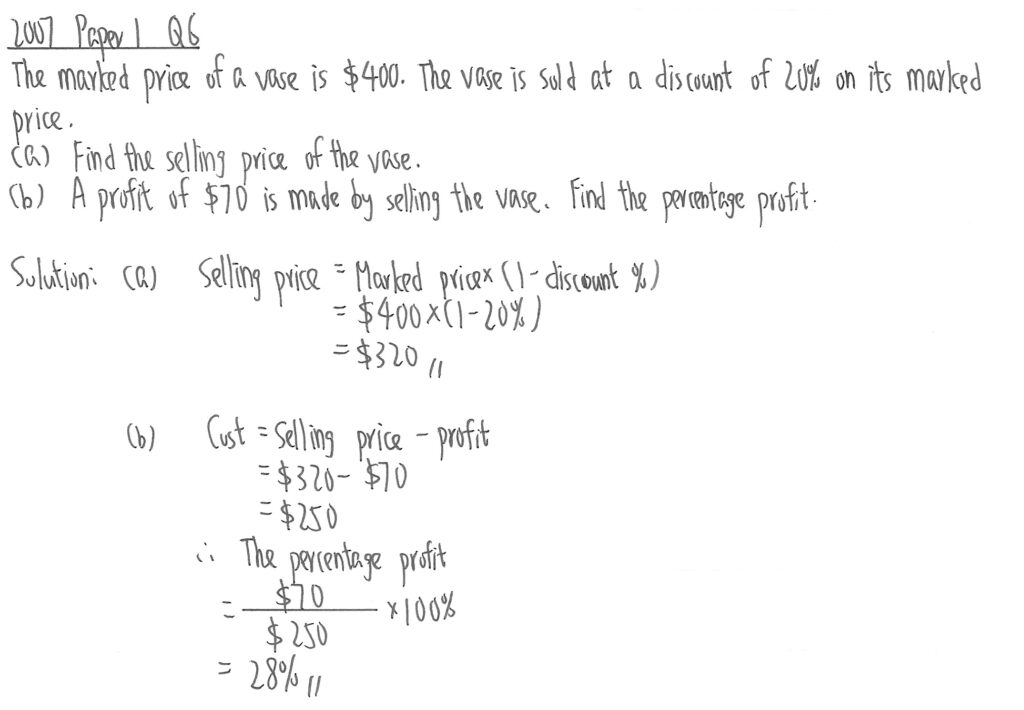 2007 Paper 1 Q6
The marked price of a vase is $400. The vase is sold at a discount of 20% on its marked
price.
(a) Find the selling price of the vase.
(b) A profit of $70 is made by selling the vase. Find the percentage profit.
Solution: (a) Selling price = Marked price × (1 - discount %)
= $400 × (1 - 20%)
= $320 //
(b) Cost = Selling price - profit
= $320 - $70
= $250
∴ The percentage profit
= $70 / $250 × 100%
= 28% //